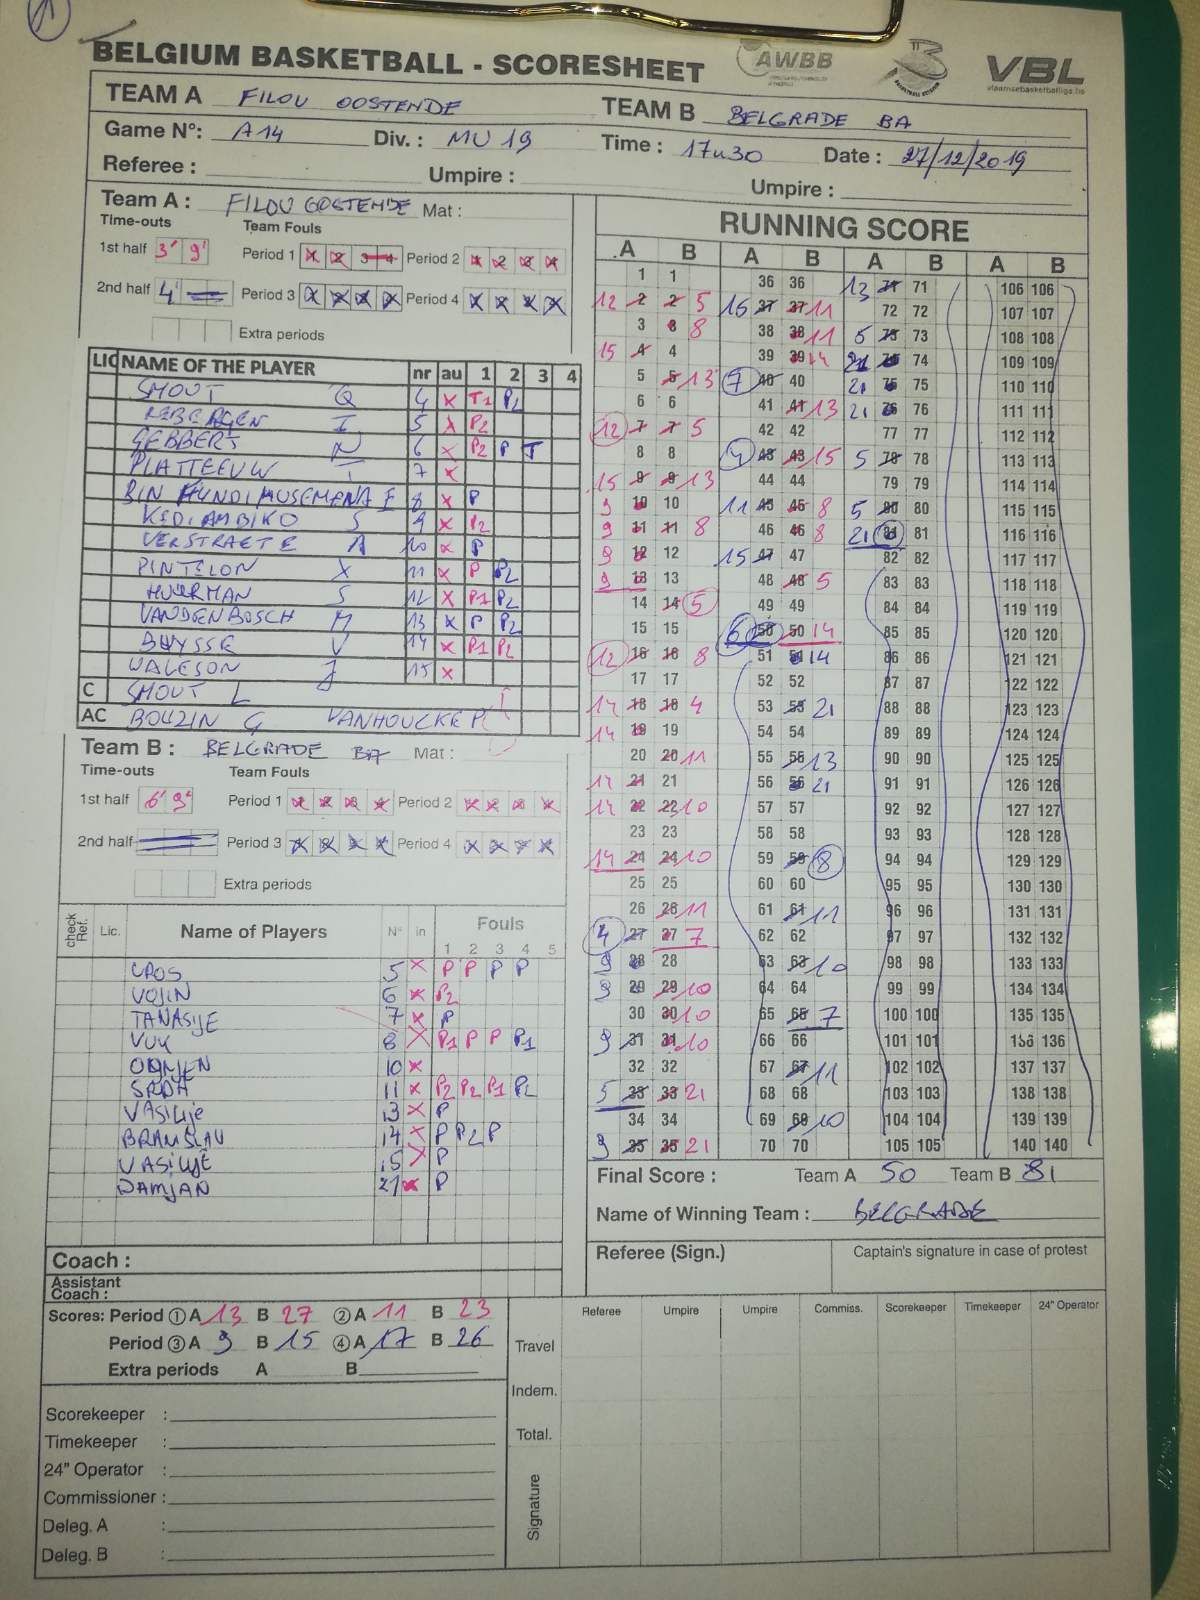 BELGIUM BASKETBALL - SCORESHEET
AWBB
VBL
vlaamsebasketballiga.be
TEAM A FILOU OOSTENDE TEAM B BELGRADE BA
Game N°: A14 Div. : MU 19 Time : 17u30 Date : 27/12/2019
Referee : Umpire : Umpire :
Team A : FILOU OOSTENDE Mat :
Time-outs Team Fouls
1st half 3' 9' Period 1 1 2 3 4 Period 2 1 2 3 4
2nd half 4' Period 3 1 2 3 4 Period 4 1 2 3 4
Extra periods
LIC NAME OF THE PLAYER nr au 1 2 3 4
SMOUT Q 4 x T1 P2
I 5 x P2
GEBBERT N 6 x P2 P T
PLATTEEUW 7 x
8 x P
S 9 x P2
VERSTRAETE A 10 x P
PINTELON X 11 x P P2
HUURMAN S 12 x P1 P2
VANDENBOSCH M 13 x P P2
BUYSSE V 14 x P1 P2
WALESON J 15 x
C SMOUT L
AC BOUZIN G VANHOUCKE P
Team B : BELGRADE BA Mat :
Time-outs Team Fouls
1st half 6' 9' Period 1 1 2 3 4 Period 2 1 2 3 4
2nd half Period 3 1 2 3 4 Period 4 1 2 3 4
Extra periods
check Ref. Lic. Name of Players N° in Fouls
1 2 3 4 5
UROS 5 x P P P P
VOJIN 6 x P2
TANASIJE 7 x P
VUK 8 x P1 P P P1
OGNJEN 10 x
SRDA 11 x P2 P2 P1 P2
VASILIJE 13 x P
BRANISLAV 14 x P P2 P
VASILIJE 15 x P
DAMJAN 21 x P
Coach :
Assistant
Coach :
Scores: Period ① A 13 B 27 ② A 11 B 23
Period ③ A 9 B 15 ④ A 17 B 26
Extra periods A B
Scorekeeper :
Timekeeper :
24" Operator :
Commissioner :
Deleg. A :
Deleg. B :
RUNNING SCORE
A B A B A B A B
1 1 36 36 13 71 71 106 106
12 2 2 5 16 37 37 11 72 72 107 107
3 3 8 38 38 11 5 73 73 108 108
15 4 4 39 39 14 21 74 74 109 109
5 5 13 7 40 40 21 75 75 110 110
6 6 41 41 13 21 76 76 111 111
12 7 7 5 42 42 77 77 112 112
8 8 4 43 43 15 5 78 78 113 113
15 9 9 13 44 44 79 79 114 114
9 10 10 11 45 45 8 5 80 80 115 115
9 11 11 8 46 46 8 21 81 81 116 116
9 12 12 15 47 47 82 82 117 117
9 13 13 48 48 5 83 83 118 118
14 14 5 49 49 84 84 119 119
15 15 6 50 50 14 85 85 120 120
12 16 16 8 51 51 14 86 86 121 121
17 17 52 52 87 87 122 122
14 18 18 4 53 53 21 88 88 123 123
14 19 19 54 54 89 89 124 124
20 20 11 55 55 13 90 90 125 125
14 21 21 56 56 21 91 91 126 126
14 22 22 10 57 57 92 92 127 127
23 23 58 58 93 93 128 128
14 24 24 10 59 59 8 94 94 129 129
25 25 60 60 95 95 130 130
26 26 11 61 61 11 96 96 131 131
4 27 27 7 62 62 97 97 132 132
9 28 28 63 63 10 98 98 133 133
9 29 29 10 64 64 99 99 134 134
30 30 10 65 65 7 100 100 135 135
9 31 31 10 66 66 101 101 136 136
32 32 67 67 11 102 102 137 137
5 33 33 21 68 68 103 103 138 138
34 34 69 69 10 104 104 139 139
9 35 35 21 70 70 105 105 140 140
Final Score : Team A 50 Team B 81
Name of Winning Team : BELGRADE
Referee (Sign.) Captain's signature in case of protest
Referee Umpire Umpire Commiss. Scorekeeper Timekeeper 24" Operator
Travel
Indem.
Total.
Signature